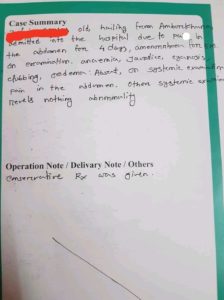 Case Summary
old hailing from Amborkhana
admitted into the hospital due to pain in
the abdomen for 4 days, amenorrhoea for
on examination. anaemia, jaundice, cyanosis,
clubbing, oedema: Absent, on systemic examination
pain in the abdomen. Others systemic
reveals nothing abnormality
Operation Note / Delivary Note / Others
conservative Rx was given.